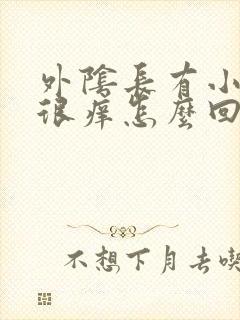 外陰長有小
很癢怎麼回
不想下月去喫